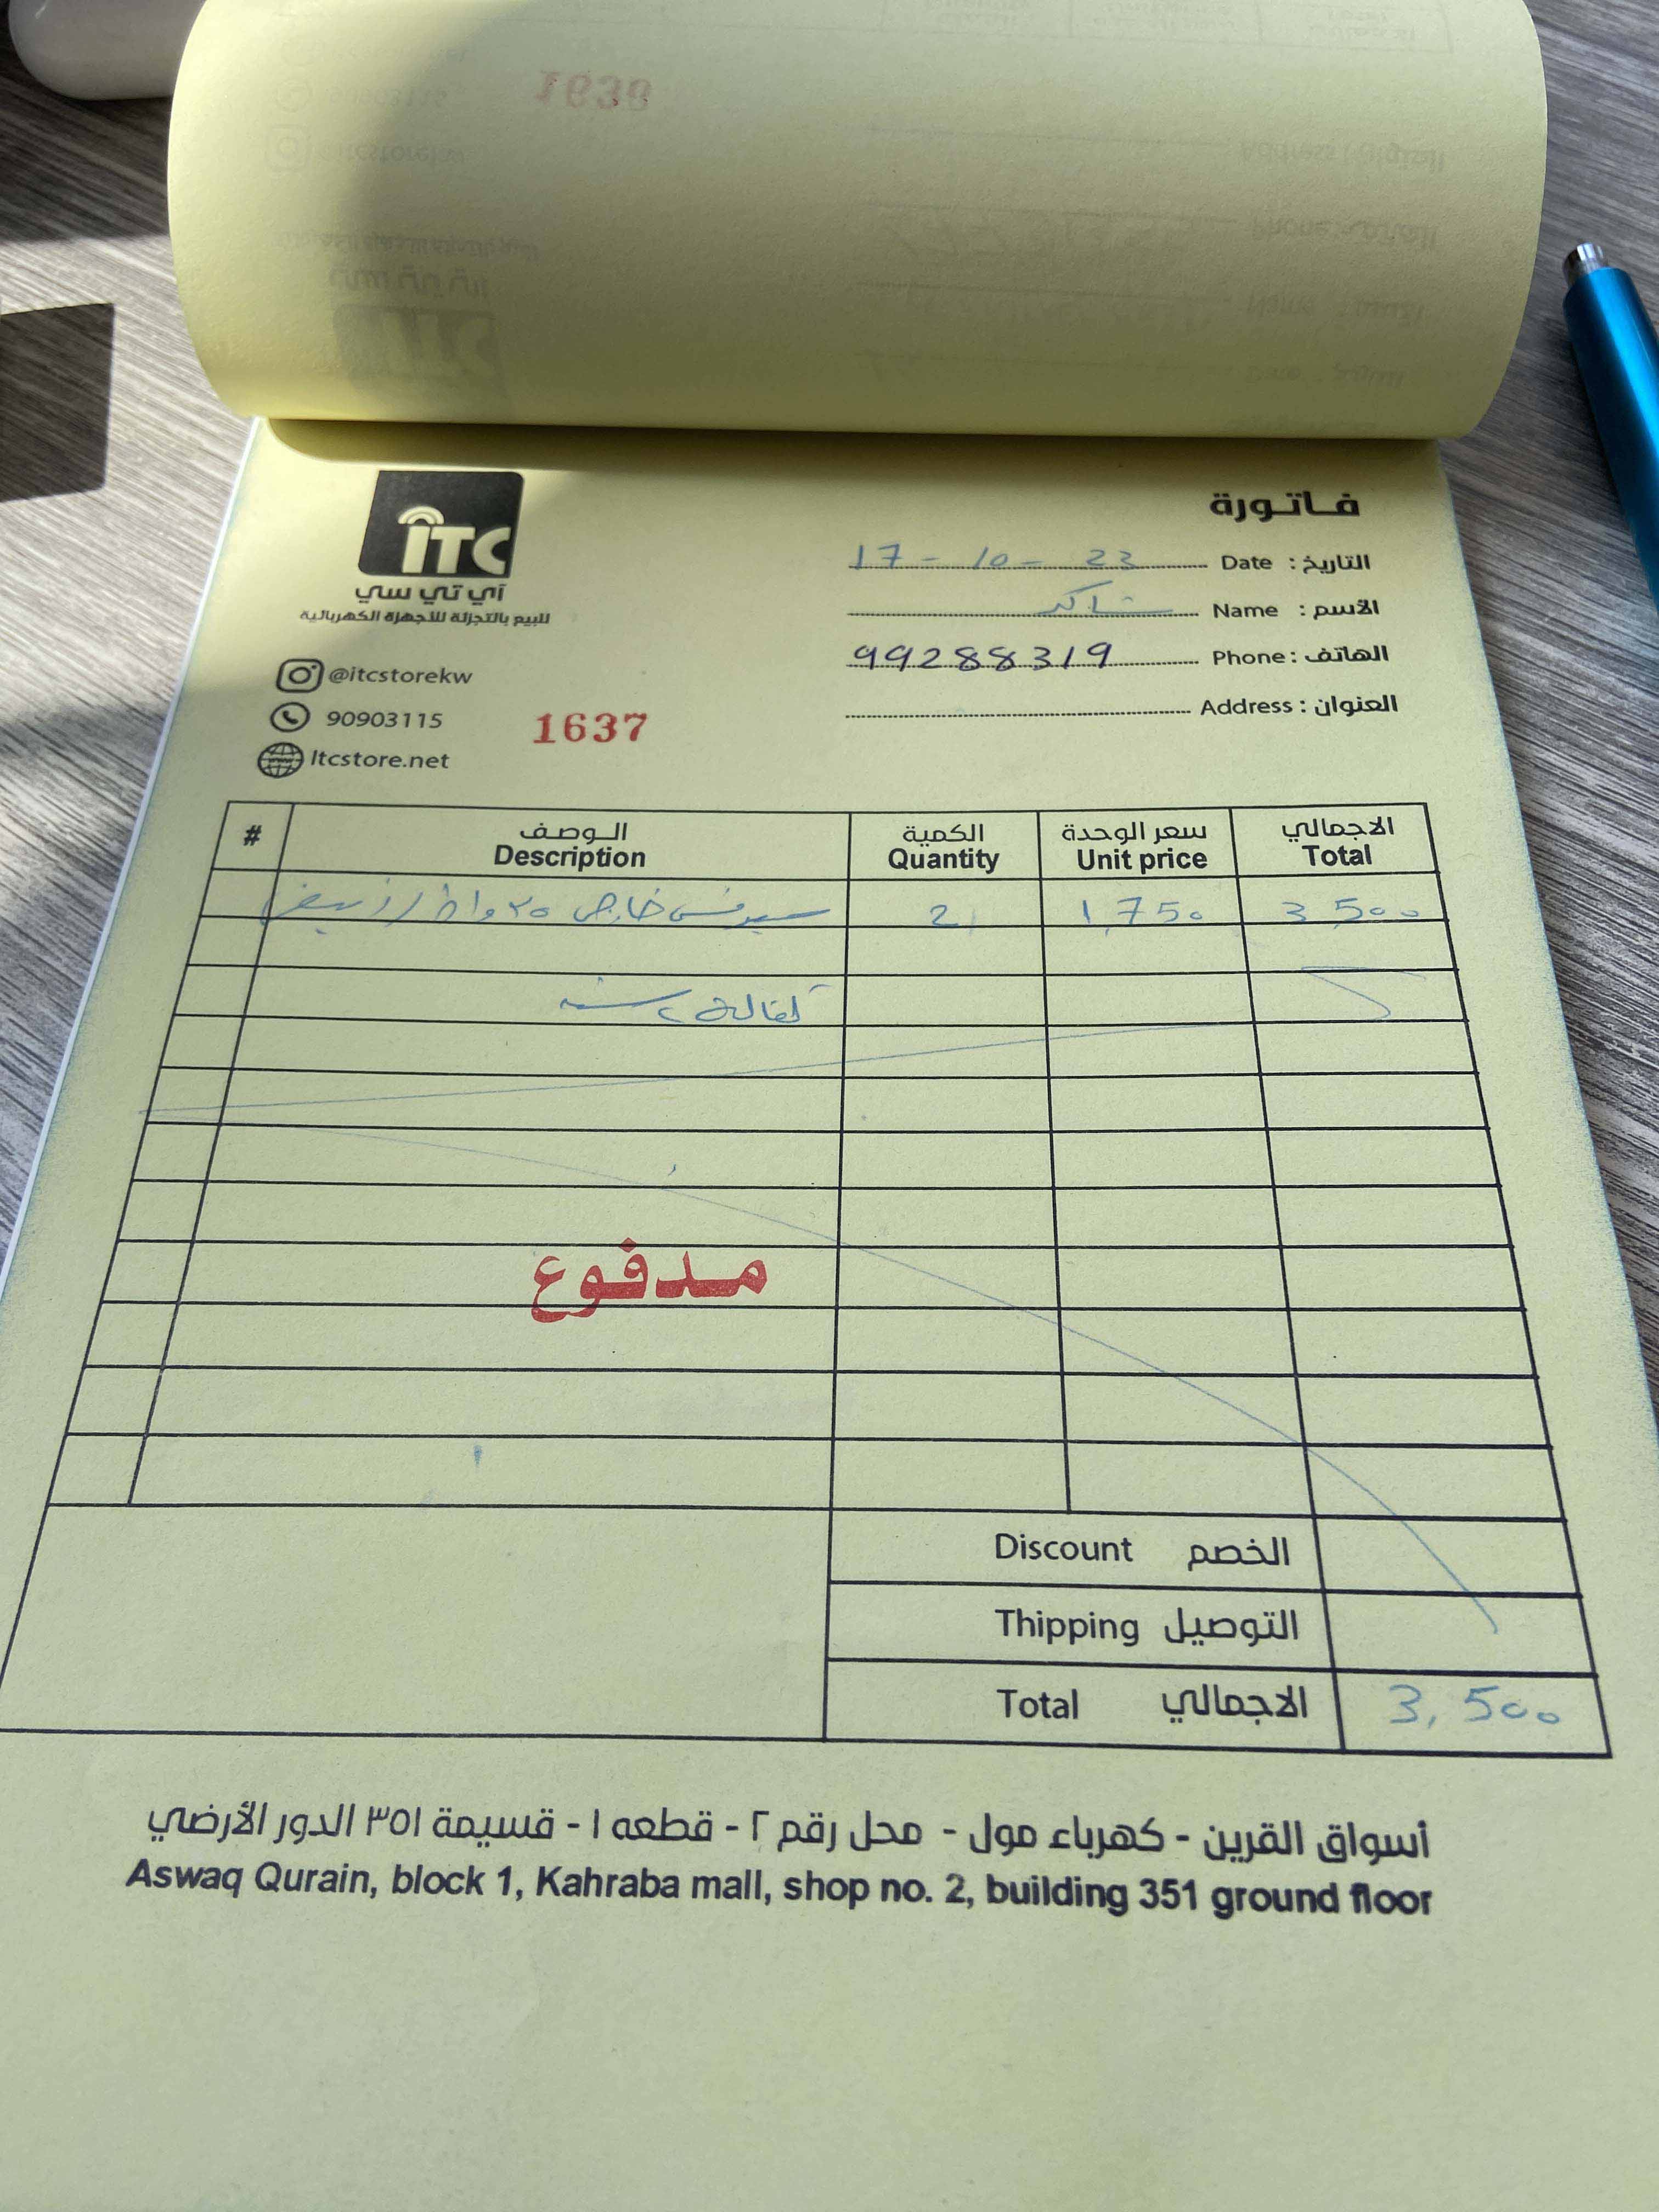 ITC
آي تي سي
للبيع بالتجزئة للأجهزة الكهربائية
@itcstorekw
90903115
Itcstore.net
1638
1637
فاتورة
التاريخ : Date 17 - 10 - 23
الأسم : Name شاكر
الهاتف : Phone 99288319
العنوان : Address
# الوصف الكمية سعر الوحدة الاجمالي
Description Quantity Unit price Total
خارجي ٣٥ واط 2 1,750 3,500
كفالة ٢ سنه
مدفوع
Discount الخصم
Thipping التوصيل
Total الاجمالي 3,500
أسواق القرين - كهرباء مول - محل رقم ٢ - قطعه ١ - قسيمة ٣٥١ الدور الأرضي
Aswaq Qurain, block 1, Kahraba mall, shop no. 2, building 351 ground floor